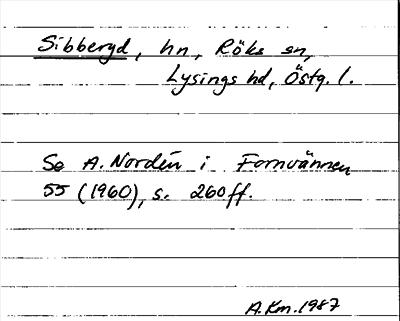 Sibbergd, hn, Röks sn,
Lysings hd, Östg. l.
Se A. Nordén i Fornvännen
55 (1960), s. 260 ff.
A.Km. 1987